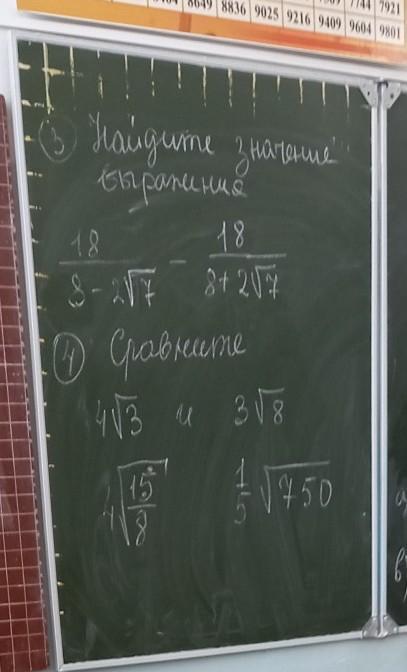 8649 8836 9025 9216 9409 9604 9801
7744 7921
③ Найдите значение
выражения
18/(8-2√7) - 18/(8+2√7)
④ Сравните
4√3 и 3√8
4√(15/8) 1/5 √750